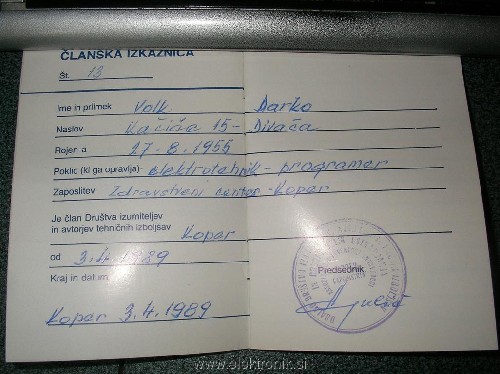 ČLANSKA IZKAZNICA
Št. 13
Ime in priimek Volk Darko
Naslov Kačiče 15 - Divača
Rojen a 27-8.1955
Poklic (ki ga opravlja) elektrotehnik - programer
Zaposlitev Zdravstveni center - Koper
Je član Društva izumiteljev
in avtorjev tehničnih izboljšav Koper
od 3.4.1989
Kraj in datum
Koper 3.4.1989
Predsednik
www.elektronik.si